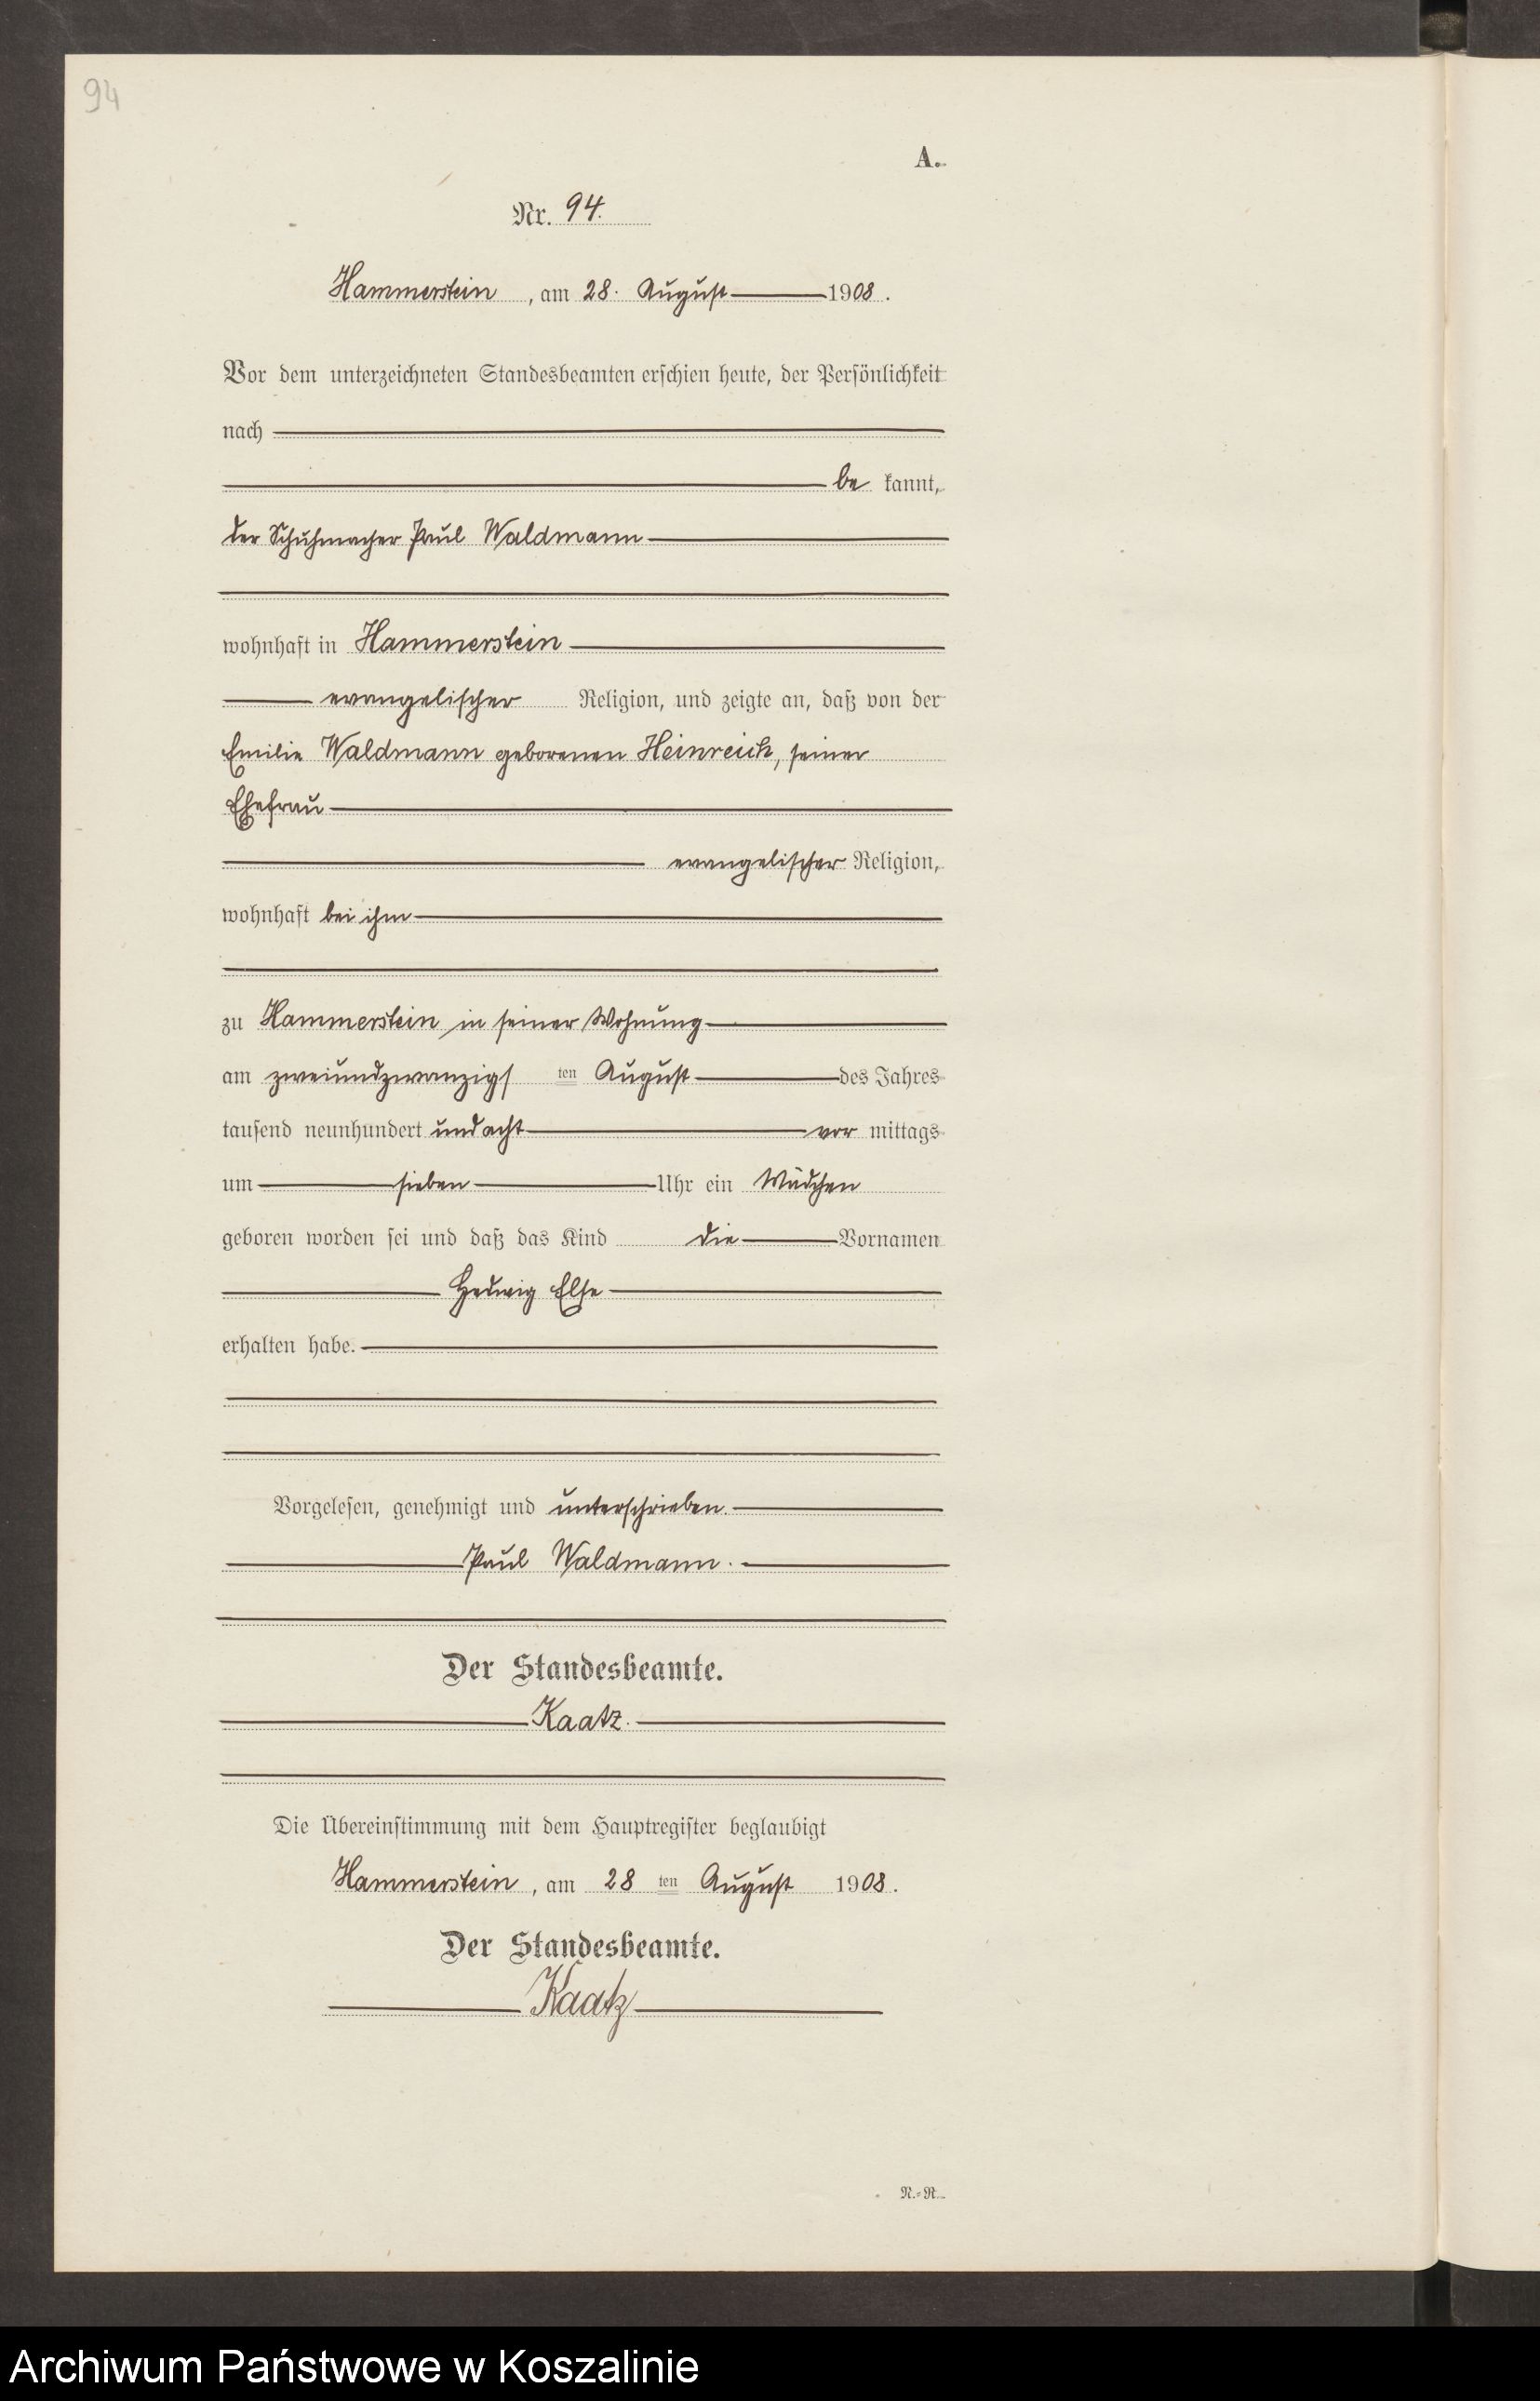 94
A.
Nr. 94.
Hammerstein, am 28. August 1908.
Vor dem unterzeichneten Standesbeamten erschien heute, der Persönlichkeit
nach
be kannt,
der Schuhmacher Paul Waldmann
wohnhaft in Hammerstein
evangelischer Religion, und zeigte an, daß von der
Emilie Waldmann geborenen Heinreich, seiner
Ehefrau
evangelischer Religion,
wohnhaft bei ihm
zu Hammerstein in seiner Wohnung
am zweiundzwanzigs ten August des Jahres
tausend neunhundert und acht vor mittags
um sieben Uhr ein Mädchen
geboren worden sei und daß das Kind die Vornamen
Hedwig Else
erhalten habe.
Vorgelesen, genehmigt und unterschrieben.
Paul Waldmann.
Der Standesbeamte.
Kaatz.
Die Übereinstimmung mit dem Hauptregister beglaubigt
Hammerstein, am 28 ten August 1908.
Der Standesbeamte.
Kaatz
N.-R.
Archiwum Państwowe w Koszalinie